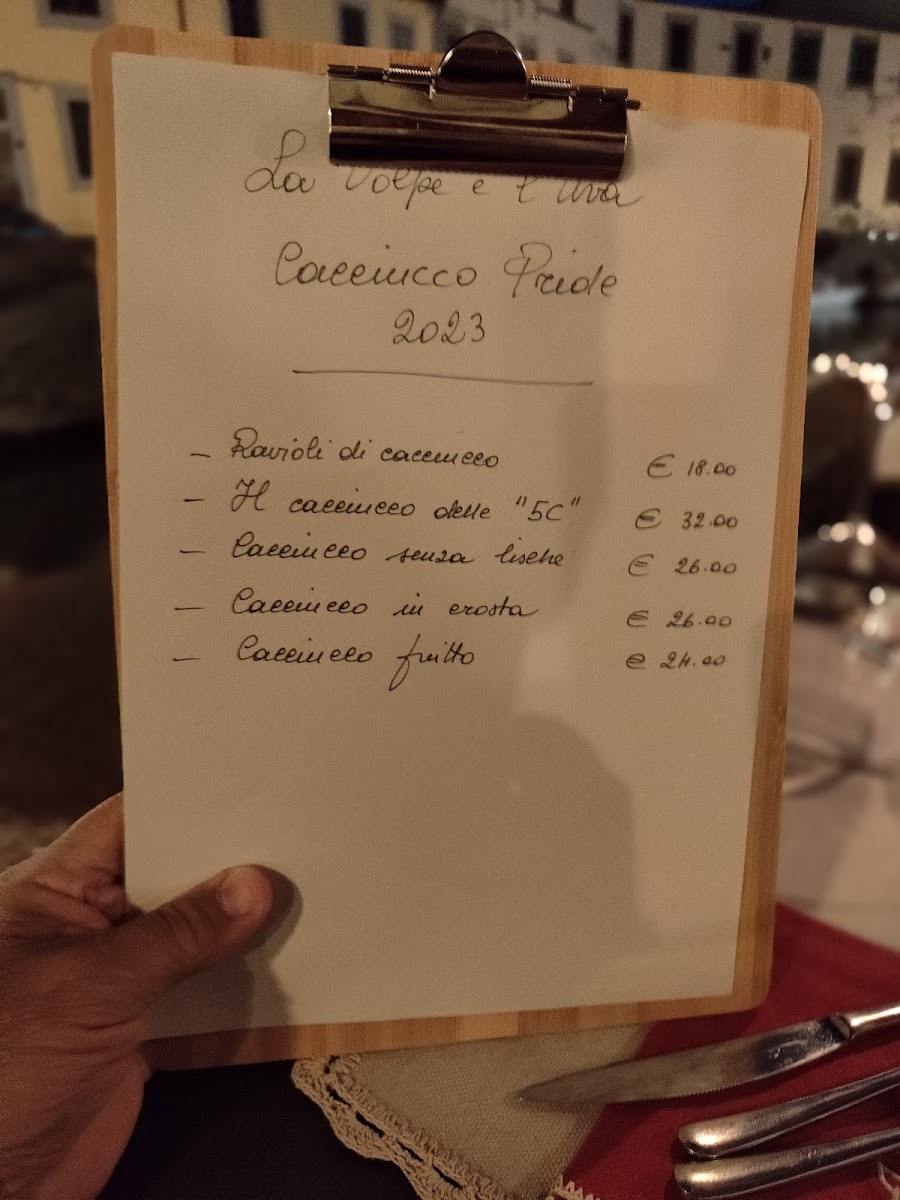 La Volpe e l'Uva
Cacciucco Pride
2023
- Ravioli di cacciucco € 18.00
- Il cacciucco delle "5C" € 32.00
- Cacciucco senza lische € 26.00
- Cacciucco in crosta € 26.00
- Cacciucco fritto € 24.00